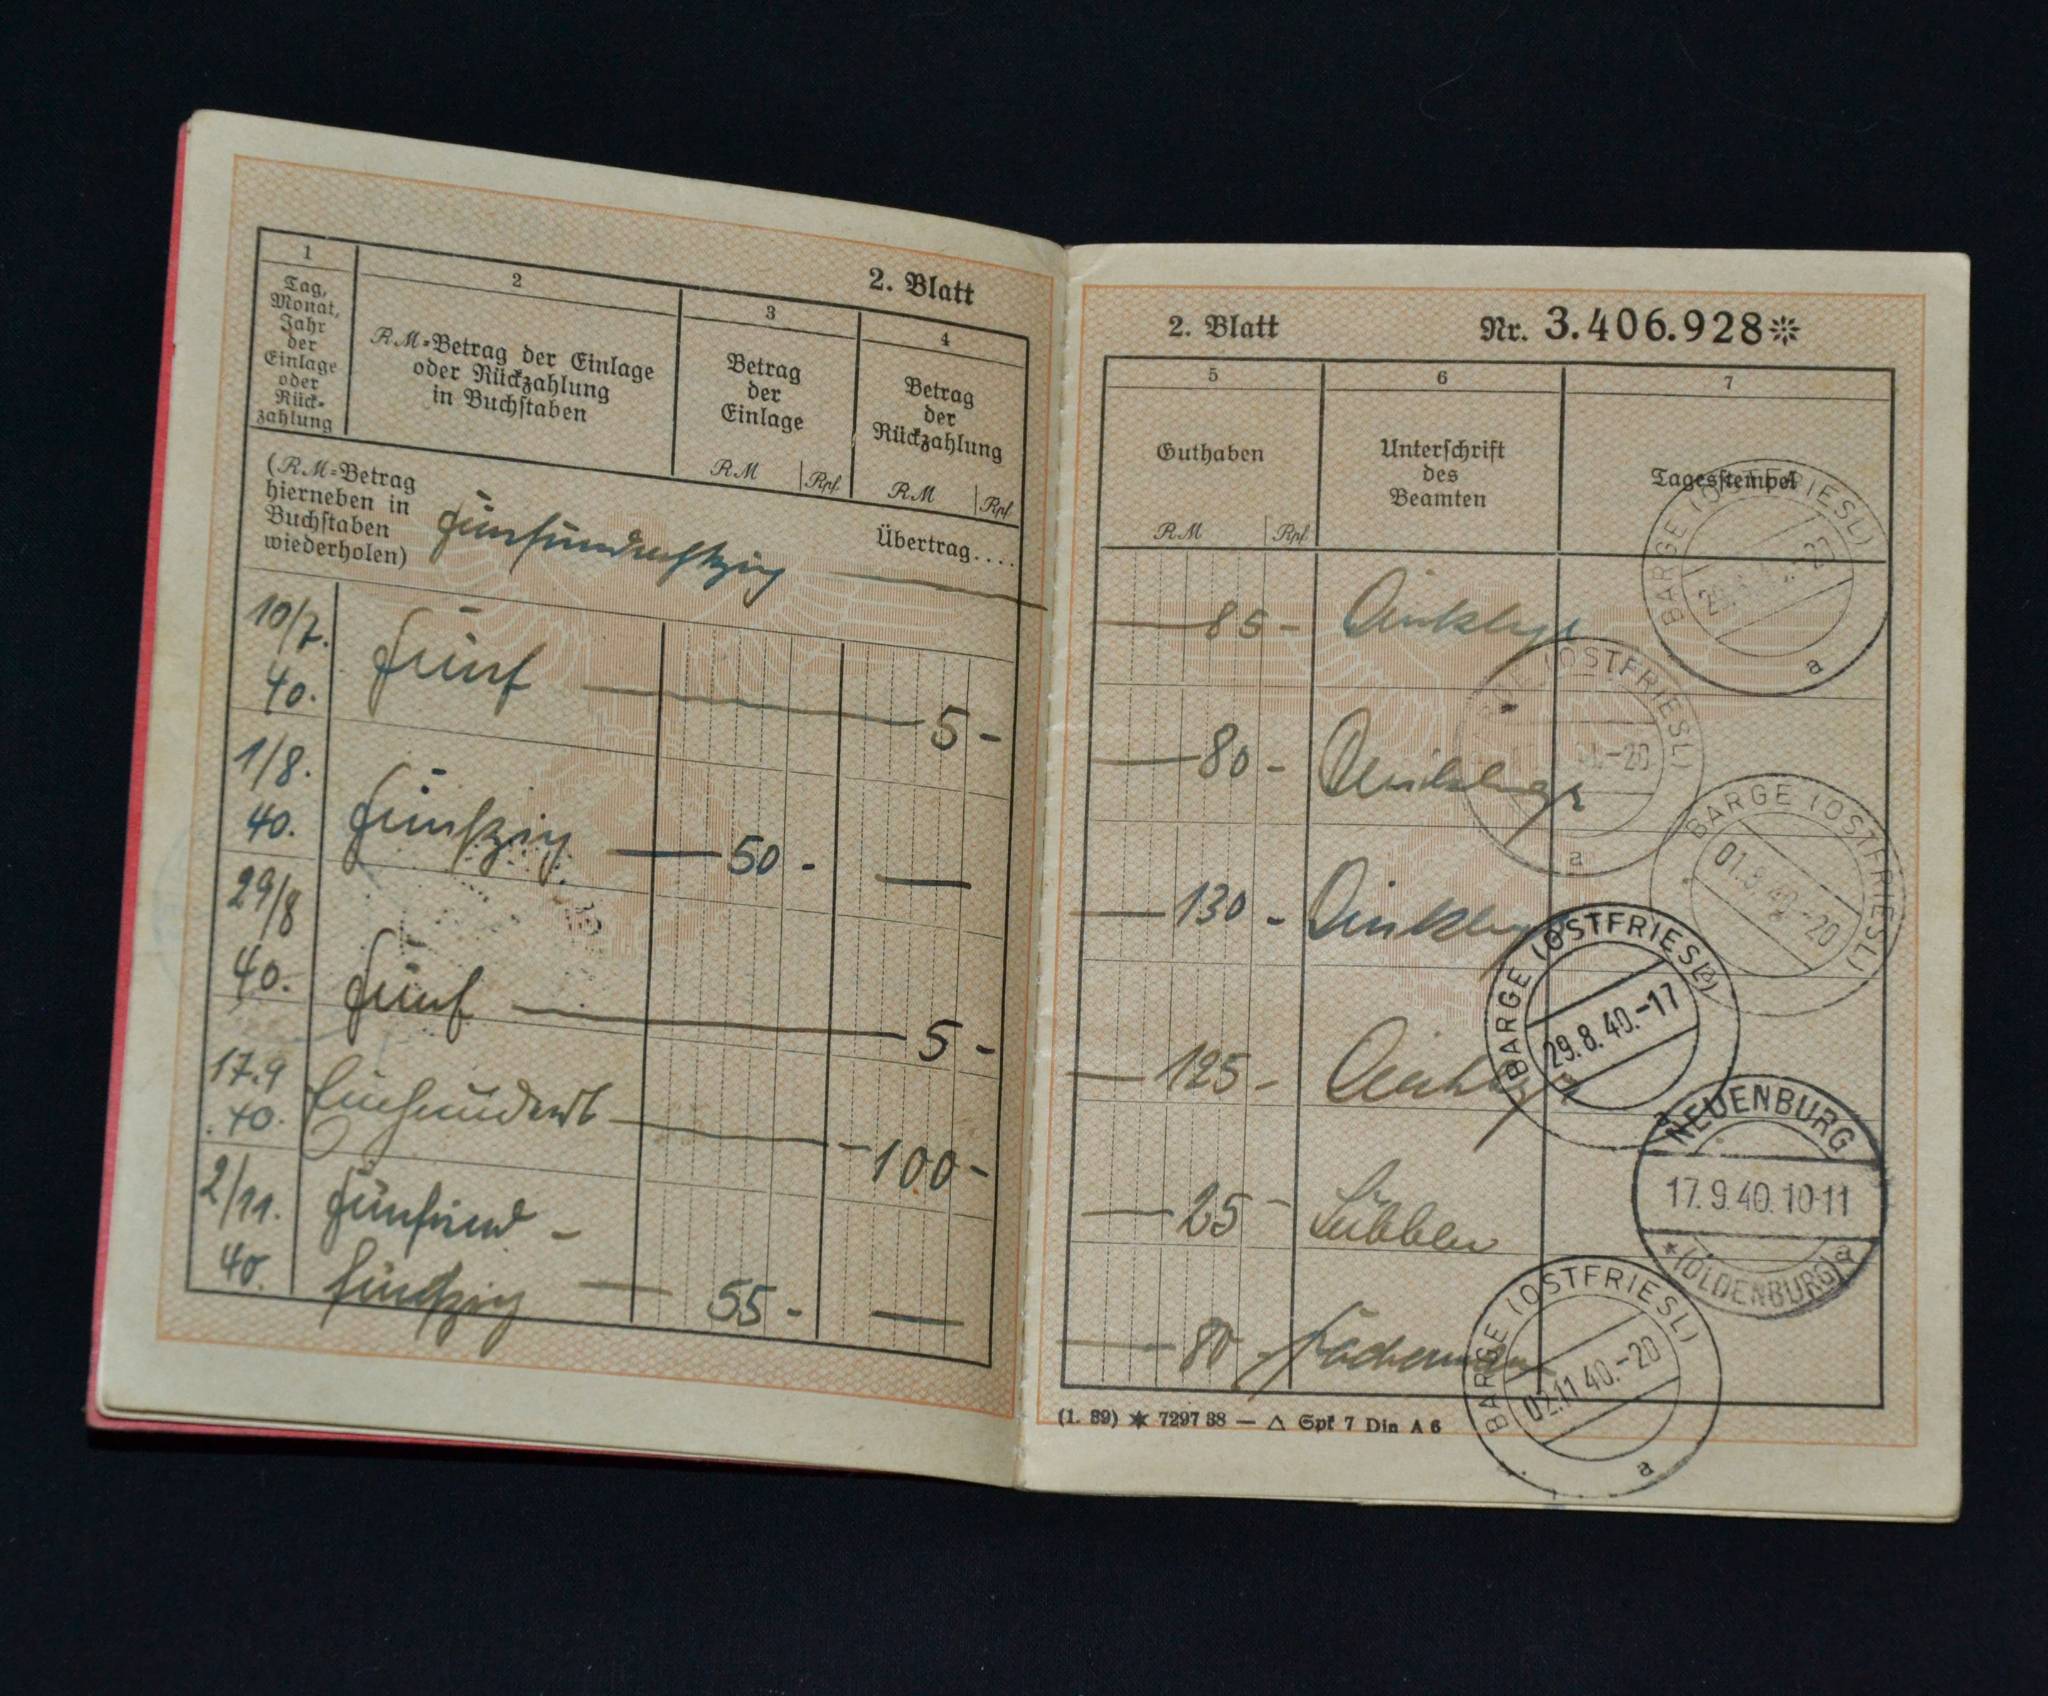 2. Blatt
1
2
3
4
Tag,
Monat,
Jahr
der
Einlage
oder
Rück-
zahlung
RM=Betrag der Einlage
oder Rückzahlung
in Buchstaben
Betrag
der
Einlage
RM Rpf.
Betrag
der
Rückzahlung
RM Rpf.
(RM=Betrag
hierneben in
Buchstaben
wiederholen)
fünfundachtzig
Übertrag....
10/7.
40.
fünf 5 -
1/8.
40.
fünfzig 50 -
29/8
40.
fünf 5 -
17.9
.40.
Einhundert 100 -
2/11.
40.
fünfund -
fünfzig 55 -
2. Blatt Nr. 3.406.928
5
6
7
Guthaben
RM Rpf.
Unterschrift
des
Beamten
Tagesstempel
85 -
80 -
130 -
125 -
25 - Lübben
80 -
BARGE (OSTFRIESL)
a
(OSTFRIESL)
-20
a
BARGE (OSTFRIESL)
01.8.40.-20
BARGE (OSTFRIESL)
29.8.40.-17
NEUENBURG
17.9.40.10-11
(OLDENBURG)
a
BARGE (OSTFRIESL)
02.11.40.-20
a
(1. 39) ✶ 7297 38 — △ Spf 7 Din A 6